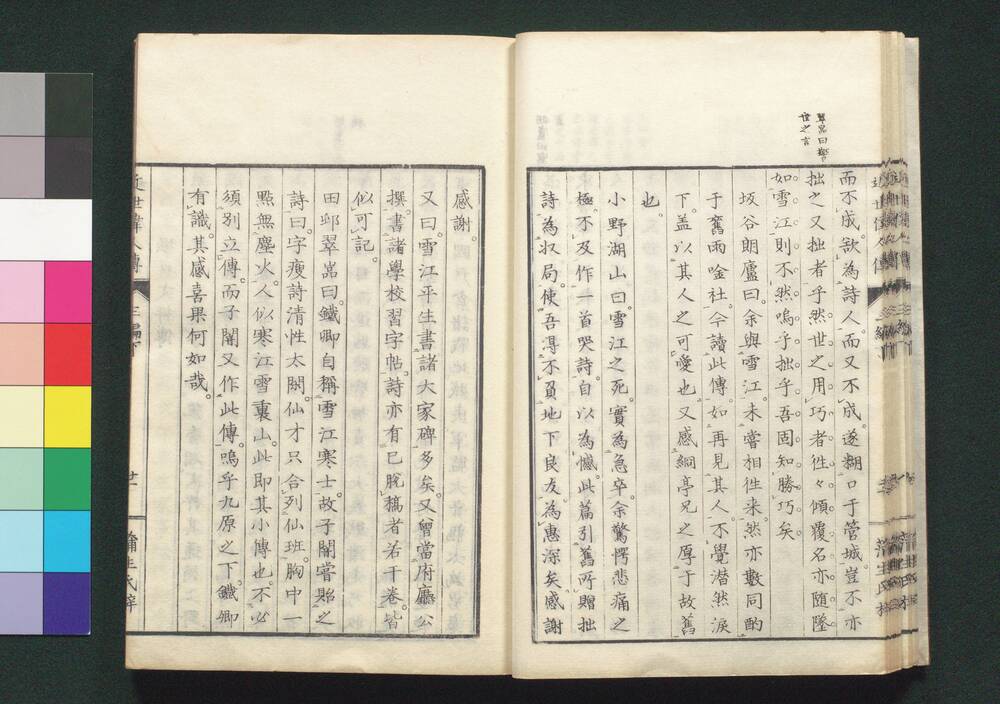 翠嵓曰警
世之言
而不成歃為詩人而又不成遂糊口于管城豈不亦
拙之又拙者乎然世之用巧者徃々傾覆名亦随墜
如雪江則不然嗚乎拙乎吾固知勝巧矣
坂谷朗廬曰余與雪江未嘗相徃来然亦數同酌
于舊雨唫社今讀此傳如再見其人不覺潜然淚
下盖以其人之可愛也又感絅亭兄之厚于故舊
也
小野湖山曰雪江之死實為急卒余驚愕悲痛之
極不及作一首哭詩自以為憾此篇引舊所贈拙
詩為収局使吾淂不負地下良友為惠深矣感謝
感謝
又曰雪江平生書諸大家碑多矣又曾當府廳公
撰書諸學校習字帖詩亦有已脫稿者若干巻皆
似可記
田邨翠嵓曰鐵卿自稱雪江寒士故子闇嘗貽之
詩曰字瘦詩清性太閑仙才只合列仙班胸中一
點無塵火人似寒江雪裏山此即其小傳也不必
須別立傳而子闇又作此傳嗚乎九原之下鐵卿
有識其感喜果何如哉
近世偉人傳
三編下
廿一
蒲生氏梓